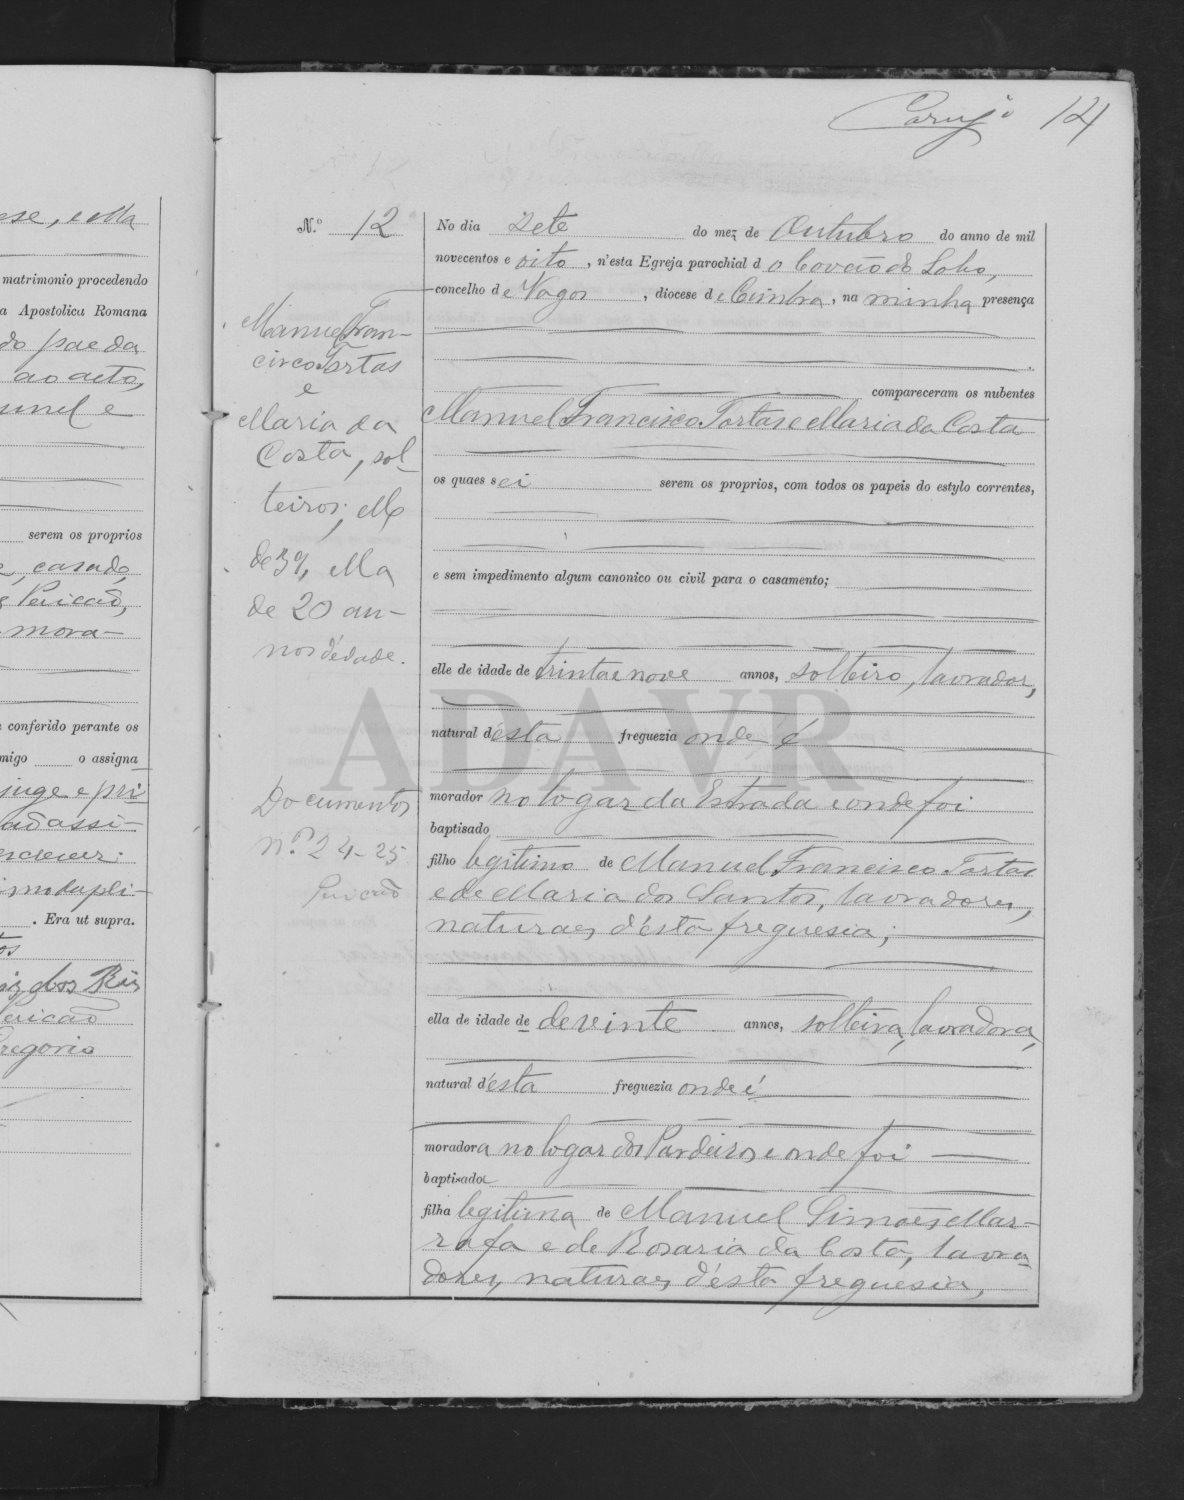 Carujo 14
se, e ella
matrimonio procedendo
a Apostolica Romana
do pae da
ao acto,
unel e
serem os proprios
casado,
Pericão,
mora-
conferido perante os
migo o assigna
juge e pri
não assi-
escrever.
modupli-
. Era ut supra.
tos
dos Reis
Pericão
Gregorio
N.º 12
Manuel Fran-
cisco Tortas
e
Maria da
Costa, sol-
teiros; elle
de 39, ella
de 20 an-
nos d'edade.
Documentos
N.os 24-25
Pericão
No dia Sete do mez de Outubro do anno de mil
novecentos e oito, n'esta Egreja parochial d o Covão do Lobo,
concelho de Vagos, diocese de Coimbra, na minha presença
compareceram os nubentes
Manuel Francisco Tortas e Maria da Costa
os quaes sei serem os proprios, com todos os papeis do estylo correntes,
e sem impedimento algum canonico ou civil para o casamento;
elle de idade de trinta e nove annos, solteiro, lavrador,
natural d'esta freguezia onde é
ADAVR
morador no logar da Estrada e onde foi
baptisado
filho legitimo de Manuel Francisco Tortas
e de Maria dos Santos, lavradores,
naturaes d'esta freguesia;
ella de idade de de vinte annos, solteira, lavradora,
natural d'esta freguezia onde é
moradora no logar dos Pardeiros e onde foi
baptisada
filha legitima de Manuel Simões Mar-
rafa e de Rosaria da Costa, lavra-
dores, naturaes d'esta freguesia,